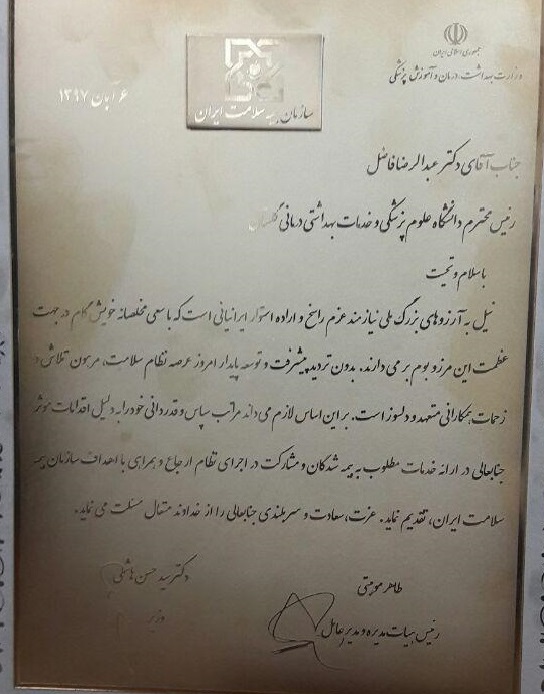 جمهوری اسلامی ایران
وزارت بهداشت، درمان و آموزش پزشکی
۶ آبان ۱۳۹۷
سازمان بیمه سلامت ایران
جناب آقای دکتر عبدالرضا فاضل
رئیس محترم دانشگاه علوم پزشکی و خدمات بهداشتی درمانی گلستان
با سلام و تحیت
نیل به آرزوهای بزرگ ملی نیازمند عزم راسخ و اراده استوار ایرانیانی است که با سعی مخلصانه خویش گام در جهت
عظمت این مرز و بوم بر می دارند. بدون تردید پیشرفت و توسعه پایدار امروز عرصه نظام سلامت، مرهون تلاش و
زحمات همکارانی متعهد و دلسوز است. بر این اساس لازم می داند مراتب سپاس و قدردانی خود را به دلیل اقدامات موثر
جنابعالی در ارائه خدمات مطلوب به بیمه شدگان و مشارکت در اجرای نظام ارجاع و همراهی با اهداف سازمان بیمه
سلامت ایران، تقدیم نماید. عزت، سعادت و سربلندی جنابعالی را از خداوند متعال مسئلت می نماید.
دکتر سید حسن هاشمی
وزیر
طاهر موهبتی
رئیس هیات مدیره و مدیر عامل